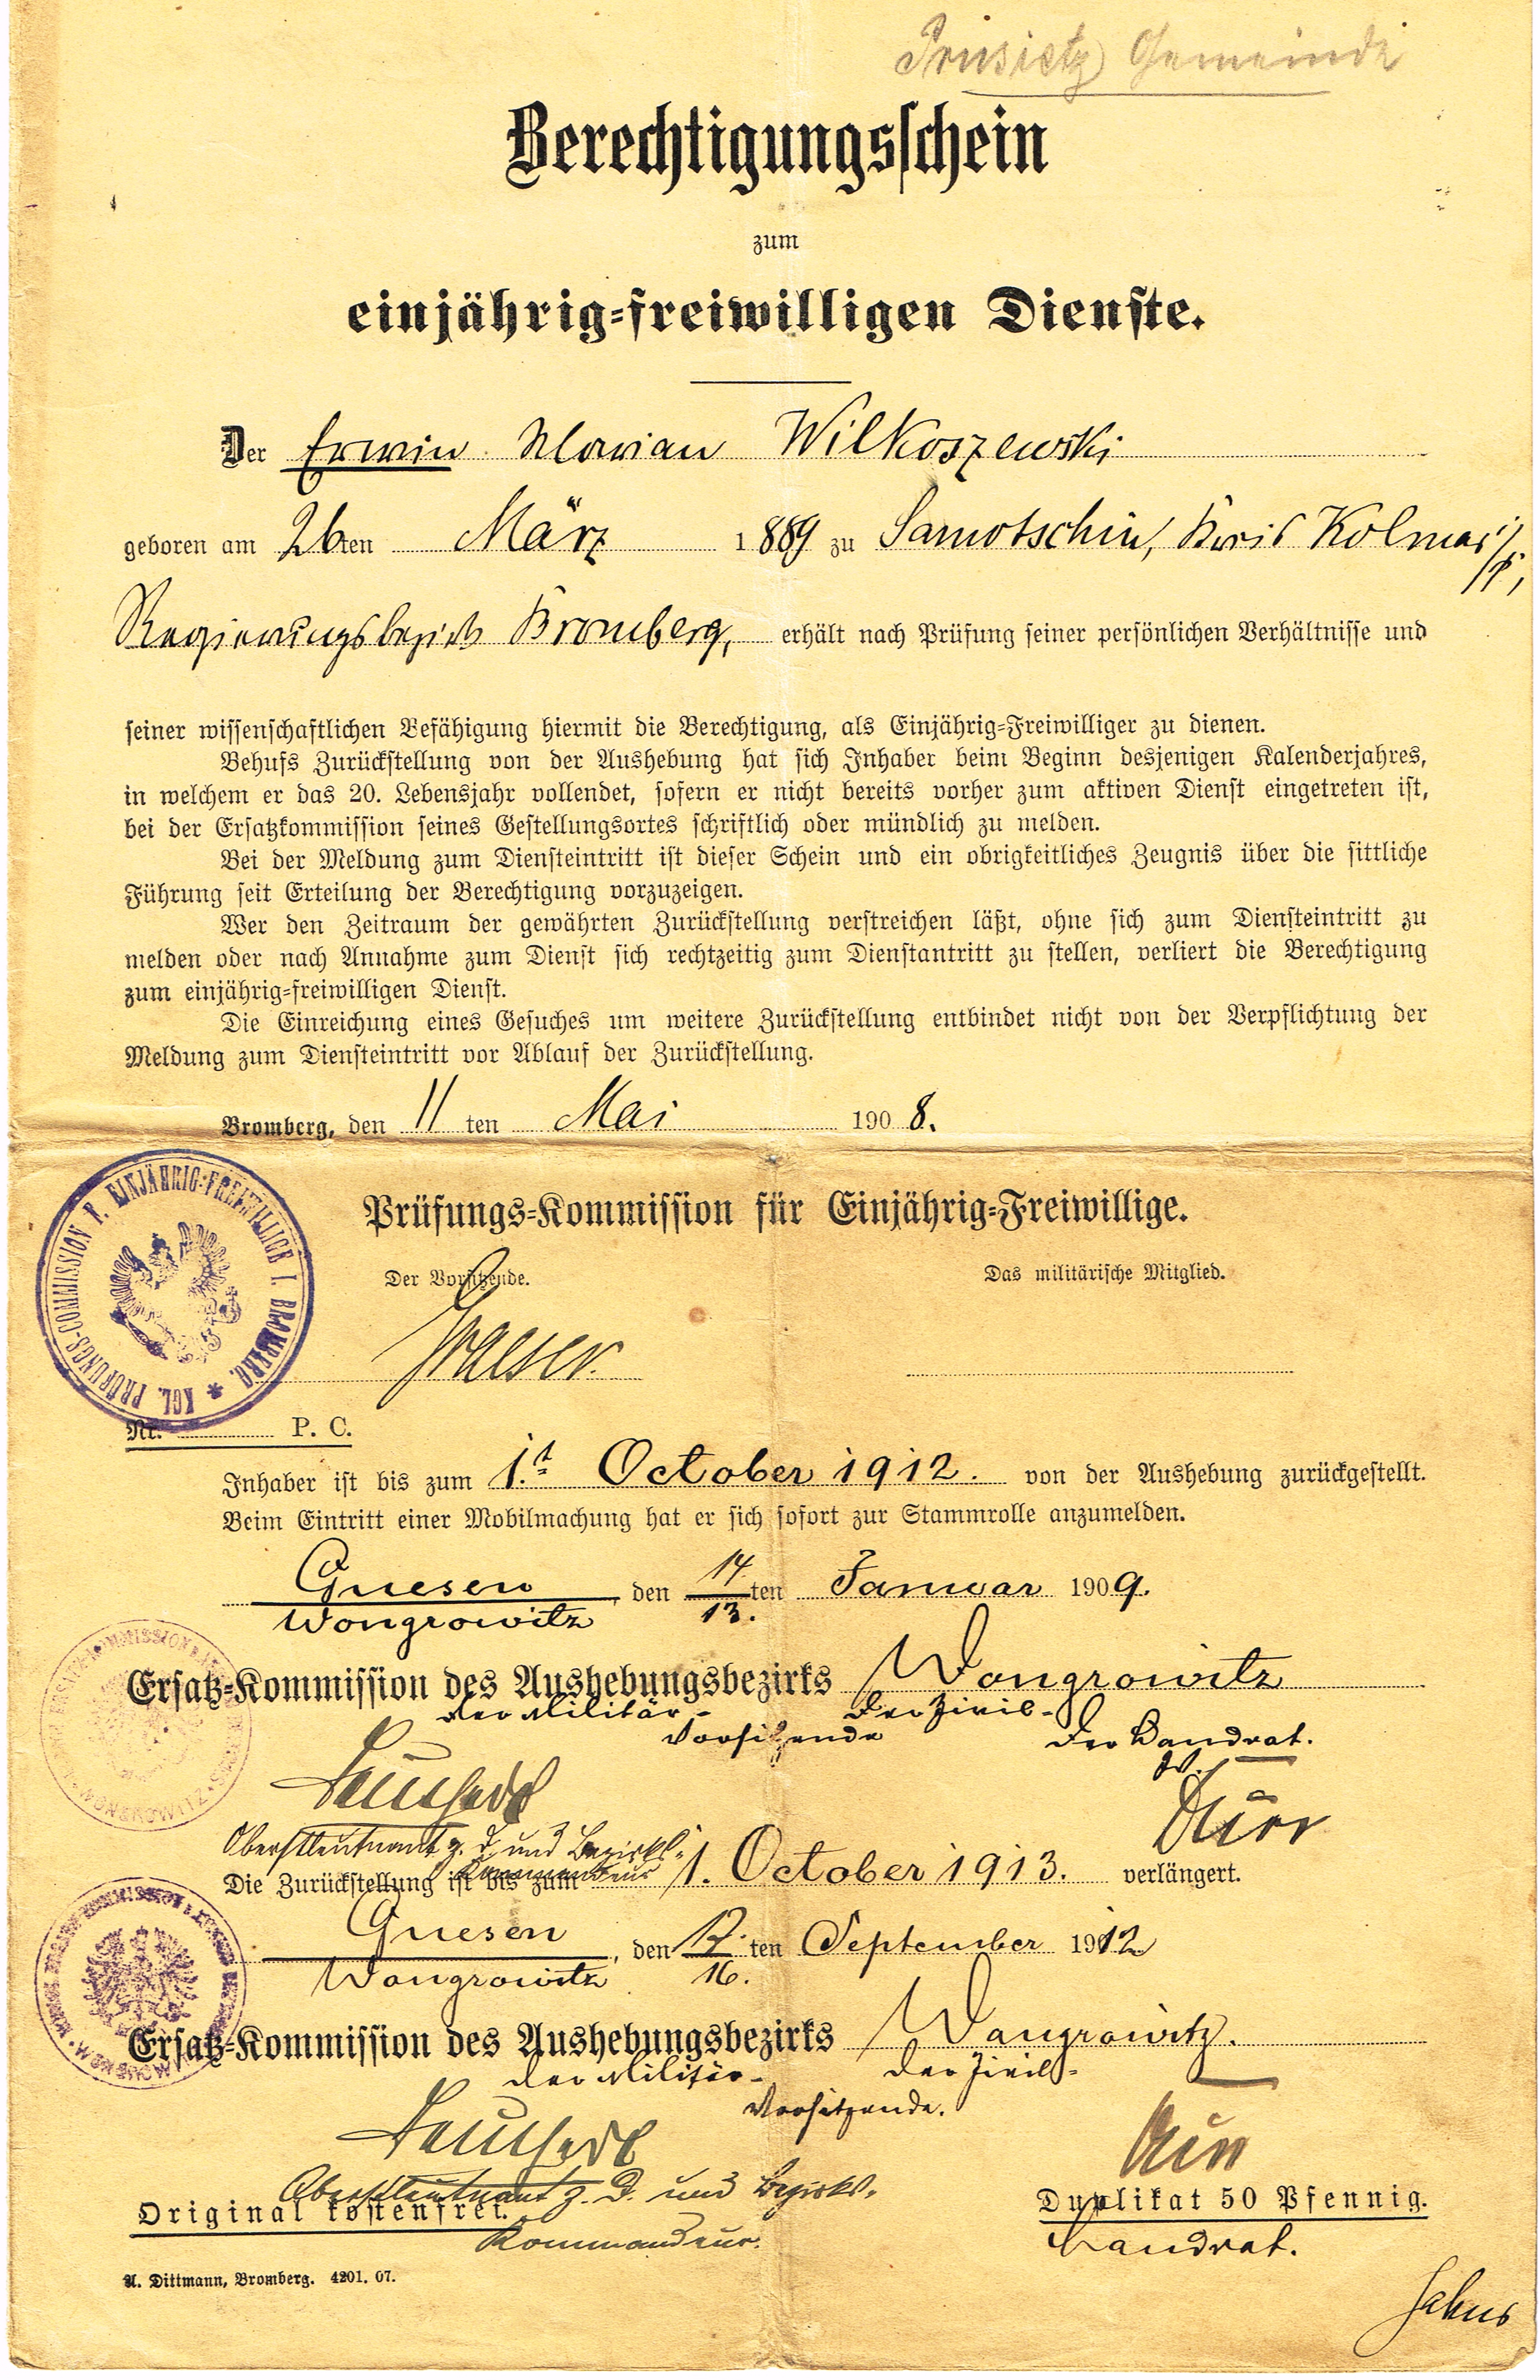 Gemeinde
Berechtigungsschein
zum
einjährig-freiwilligen Dienste.
Der Erwin Marian Wilkoszewski
geboren am 26ten März 1889 zu Samotschin, Kreis Kolmar i/P.,
Regierungsbezirk Bromberg, erhält nach Prüfung seiner persönlichen Verhältnisse und
seiner wissenschaftlichen Befähigung hiermit die Berechtigung, als Einjährig-Freiwilliger zu dienen.
Behufs Zurückstellung von der Aushebung hat sich Inhaber beim Beginn desjenigen Kalenderjahres,
in welchem er das 20. Lebensjahr vollendet, sofern er nicht bereits vorher zum aktiven Dienst eingetreten ist,
bei der Ersatzkommission seines Gestellungsortes schriftlich oder mündlich zu melden.
Bei der Meldung zum Diensteintritt ist dieser Schein und ein obrigkeitliches Zeugnis über die sittliche
Führung seit Erteilung der Berechtigung vorzuzeigen.
Wer den Zeitraum der gewährten Zurückstellung verstreichen läßt, ohne sich zum Diensteintritt zu
melden oder nach Annahme zum Dienst sich rechtzeitig zum Dienstantritt zu stellen, verliert die Berechtigung
zum einjährig-freiwilligen Dienst.
Die Einreichung eines Gesuches um weitere Zurückstellung entbindet nicht von der Verpflichtung der
Meldung zum Diensteintritt vor Ablauf der Zurückstellung.
Bromberg, den 11 ten Mai 1908.
KGL. PRÜFUNGS-COMMISSION F. EINJÄHRIG-FREIWILLIGE I. BROMBERG. *
Prüfungs-Kommission für Einjährig-Freiwillige.
Der Vorsitzende. Das militärische Mitglied.
Graeser.
Nr. P. C.
Inhaber ist bis zum 1.t October 1912. von der Aushebung zurückgestellt.
Beim Eintritt einer Mobilmachung hat er sich sofort zur Stammrolle anzumelden.
Gnesen, den 14. ten Januar 1909.
Wongrowitz 13.
Ersatz-Kommission des Aushebungsbezirks Wongrowitz
Der Militär- Der Zivil-
Vorsitzende Der Landrat.
Oberstleutnant z. D. und Bezirks-
Kommandeur
Die Zurückstellung ist bis zum 1. October 1913. verlängert.
Gnesen, den 17. ten September 1912
Wongrowitz 16.
Ersatz-Kommission des Aushebungsbezirks Wongrowitz.
Der Militär- Der Zivil-
Vorsitzende.
Oberstleutnant z. D. und Bezirks-
Original kostenfrei. Duplikat 50 Pfennig.
Kommandeur. Landrat.
A. Dittmann, Bromberg. 4201. 07.